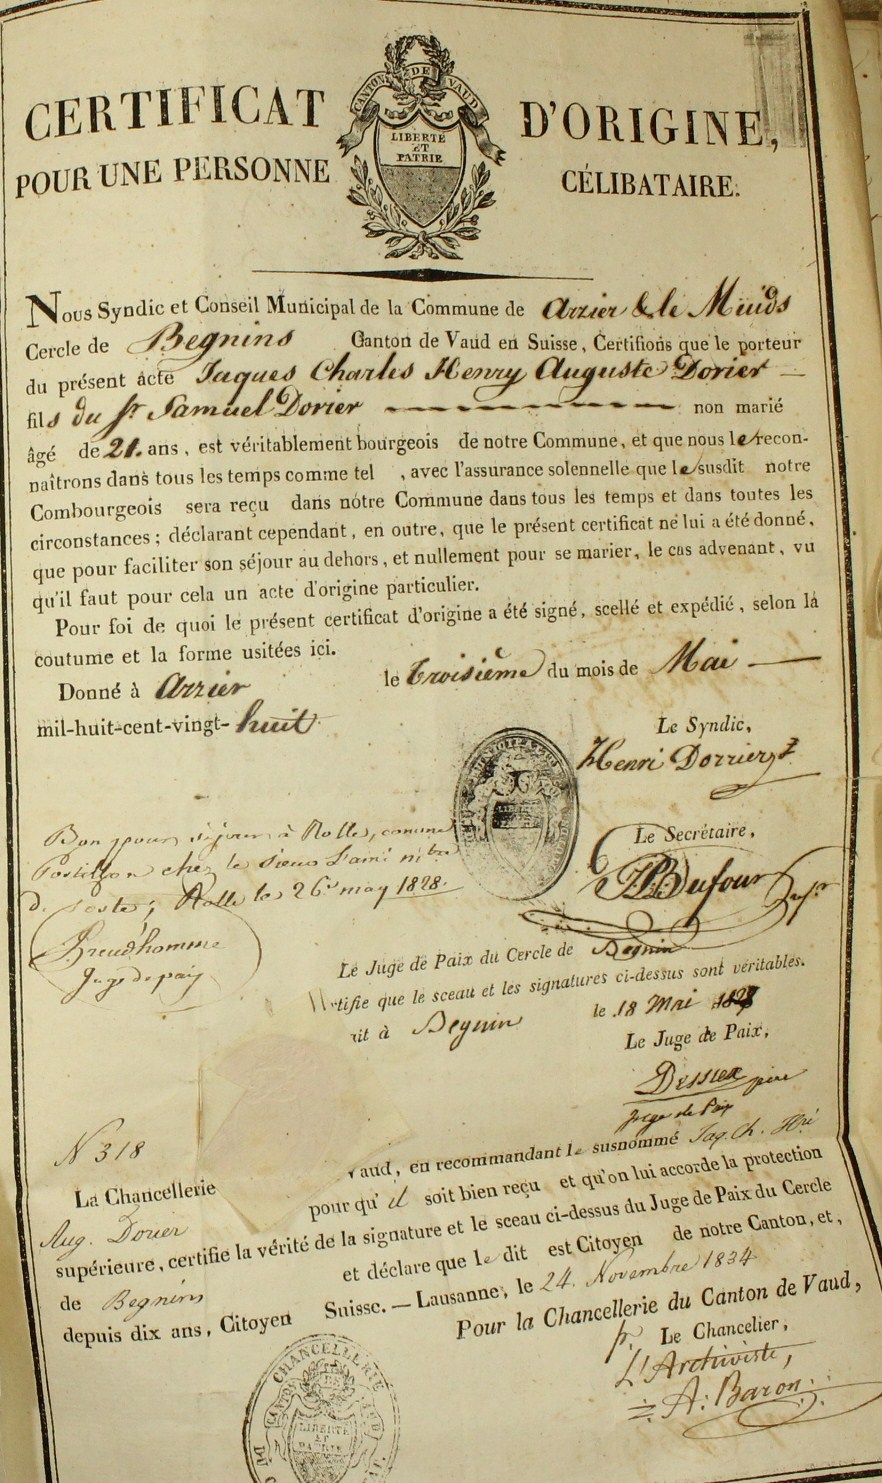 CANTON DE VAUD
LIBERTÉ
ET
PATRIE
CERTIFICAT D'ORIGINE,
POUR UNE PERSONNE CÉLIBATAIRE.
Nous Syndic et Conseil Municipal de la Commune de Arzier & le Muids
Cercle de Begnins Canton de Vaud en Suisse, Certifions que le porteur
du présent acte Jaques Charles Henry Auguste Dorier
fils du Sr Samuel Dorier non marié
âgé de 21. ans, est véritablement bourgeois de notre Commune, et que nous le recon-
naîtrons dans tous les temps comme tel, avec l'assurance solennelle que le susdit notre
Combourgeois sera reçu dans nôtre Commune dans tous les temps et dans toutes les
circonstances; déclarant cependant, en outre, que le présent certificat ne lui a été donné,
que pour faciliter son séjour au dehors, et nullement pour se marier, le cas advenant, vu
qu'il faut pour cela un acte d'origine particulier.
Pour foi de quoi le présent certificat d'origine a été signé, scellé et expédié, selon la
coutume et la forme usitées ici.
Donné à Arzier le troisième du mois de Mai
mil-huit-cent-vingt-huit
Le Syndic,
Henri Dorrier
Le Secrétaire,
Dufour
Bon pour séjour à Rolle, comme
Postillon chez le Sieur
de Poste; Rolle le 26 may 1828.
Preudhomme
Juge de paix
Le Juge de Paix du Cercle de Begnin
tifie que le sceau et les signatures ci-dessus sont véritables.
à Begnin le 18 Mai
Le Juge de Paix,
père
Juge de Paix
N 318
La Chancellerie aud, en recommandant le susnommé Jaq. Ch. Hri
Aug. Dorier pour qu'il soit bien reçu et qu'on lui accorde la protection
supérieure, certifie la vérité de la signature et le sceau ci-dessus du Juge de Paix du Cercle
de Begnins et déclare que le dit est Citoyen de notre Canton, et,
depuis dix ans, Citoyen Suisse. — Lausanne, le 24. Novembre 1834
Pour la Chancellerie du Canton de Vaud,
pr Le Chancelier,
L'Archiviste,
A. Baron.
CHANCELLERIE
LIBERTÉ
ET
PATRIE